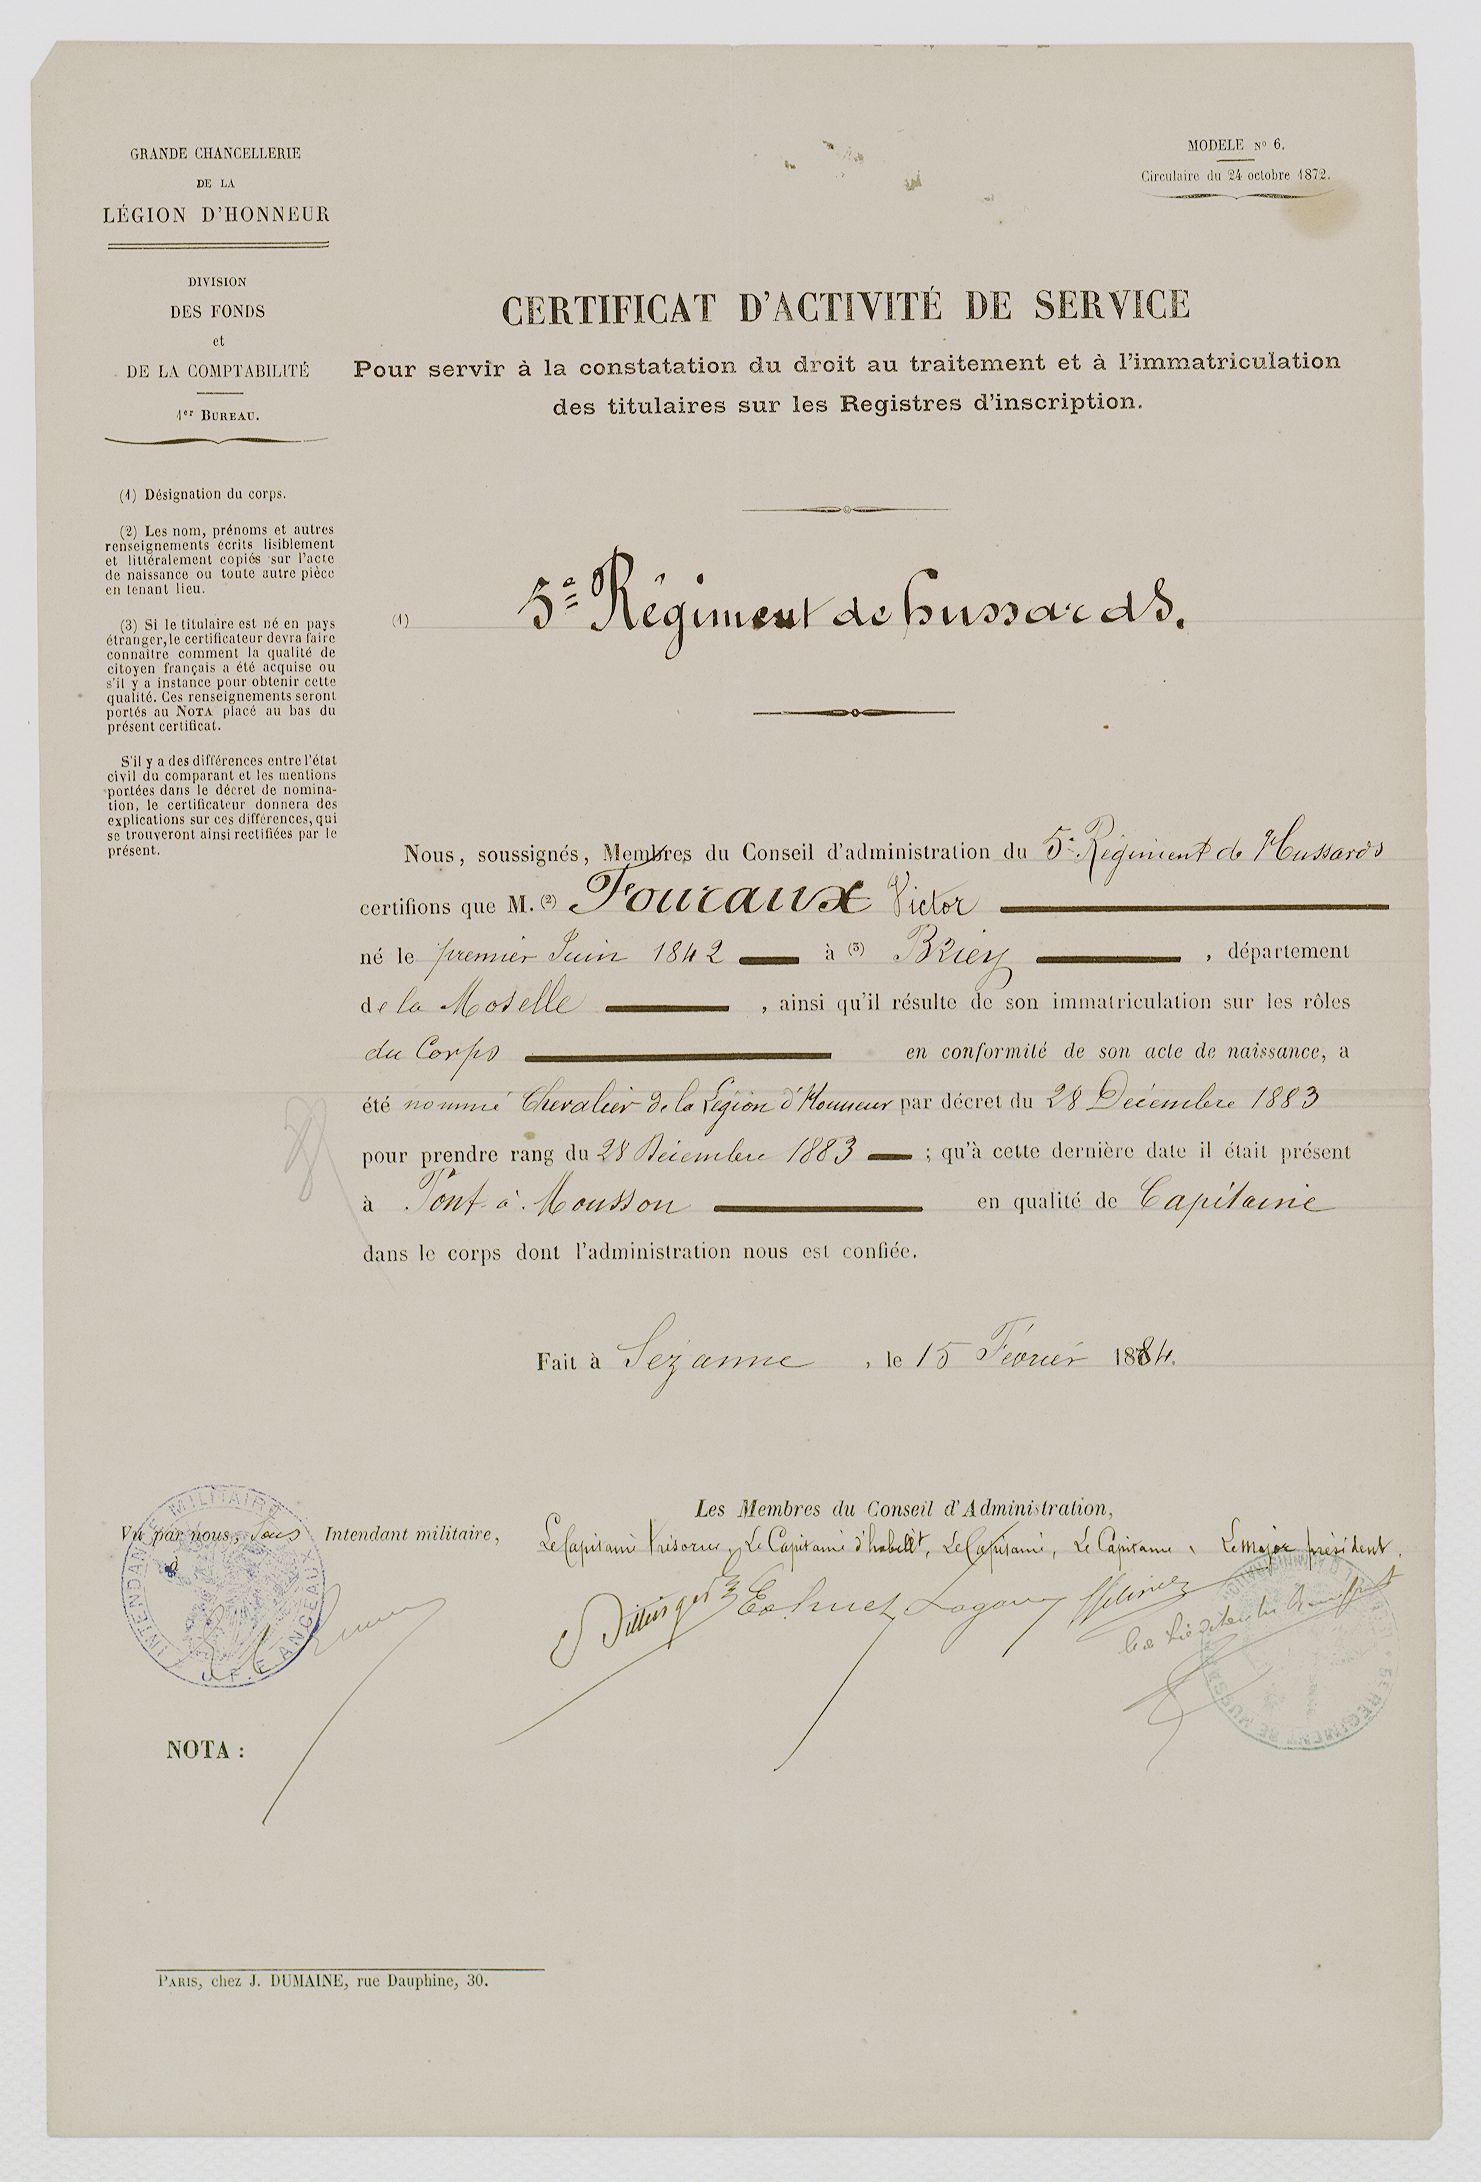 GRANDE CHANCELLERIE
DE LA
LÉGION D'HONNEUR
DIVISION
DES FONDS
et
DE LA COMPTABILITÉ
1er BUREAU.
MODELE No 6.
Circulaire du 24 octobre 1872.
CERTIFICAT D'ACTIVITÉ DE SERVICE
Pour servir à la constatation du droit au traitement et à l'immatriculation
des titulaires sur les Registres d'inscription.
(1) Désignation du corps.
(2) Les nom, prénoms et autres
renseignements écrits lisiblement
et littéralement copiés sur l'acte
de naissance ou toute autre pièce
en tenant lieu.
(3) Si le titulaire est né en pays
étranger, le certificateur devra faire
connaître comment la qualité de
citoyen français a été acquise ou
s'il y a instance pour obtenir cette
qualité. Ces renseignements seront
portés au NOTA placé au bas du
présent certificat.
S'il y a des différences entre l'état
civil du comparant et les mentions
portées dans le décret de nomina-
tion, le certificateur donnera des
explications sur ces différences, qui
se trouveront ainsi rectifiées par le
présent.
(1) 5e Régiment de hussards.
Nous, soussignés, Membres du Conseil d'administration du 5e Régiment de Hussards
certifions que M. (2) Fouraux Victor
né le premier Juin 1842 à (3) Briey , département
de la Moselle , ainsi qu'il résulte de son immatriculation sur les rôles
du Corps en conformité de son acte de naissance, a
été nommé Chevalier de la Légion d'Honneur par décret du 28 Décembre 1883
pour prendre rang du 28 Décembre 1883 ; qu'à cette dernière date il était présent
à Pont-à-Mousson en qualité de Capitaine
dans le corps dont l'administration nous est confiée.
Fait à Sézanne , le 15 Février 1884.
Les Membres du Conseil d'Administration,
Vu par nous, Sous Intendant militaire,
Le Capitaine Trésorier, Le Capitaine d'habillt, Le Capitaine, Le Capitaine, Le Major président.
INTENDANCE MILITAIRE
5E REGIMENT DE HUSSARDS
NOTA :
PARIS, chez J. DUMAINE, rue Dauphine, 30.